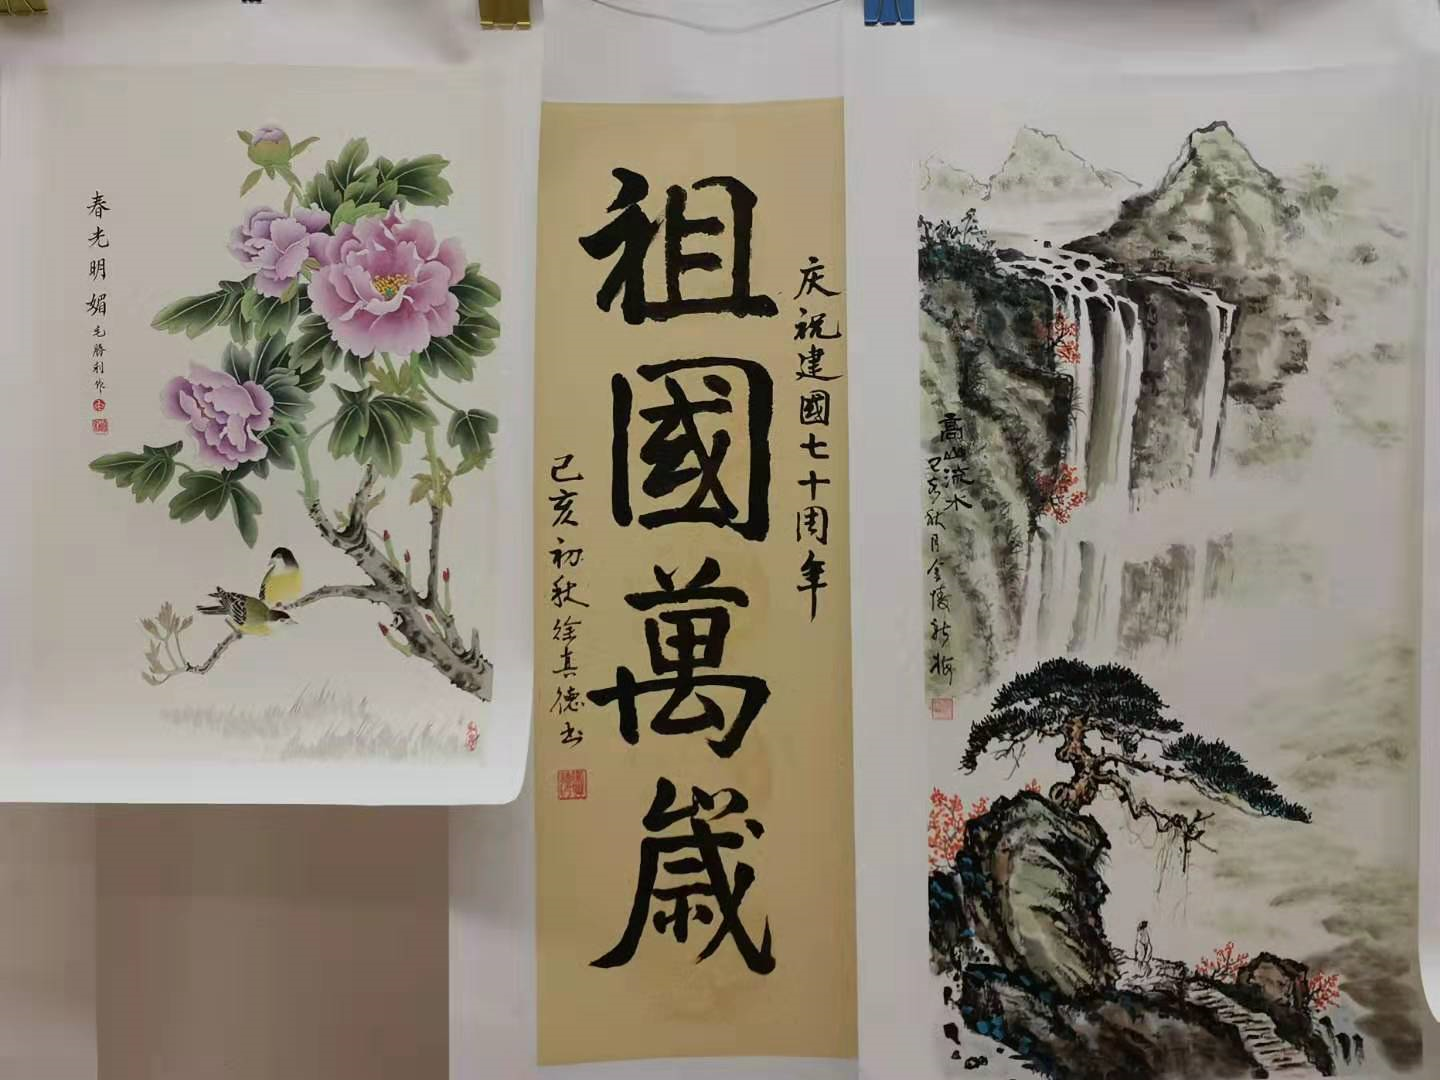 春光明媚
毛勝利作
庆祝建國七十周年
祖國萬歲
己亥初秋徐真德书
高山流水
己亥秋月金陵新梅